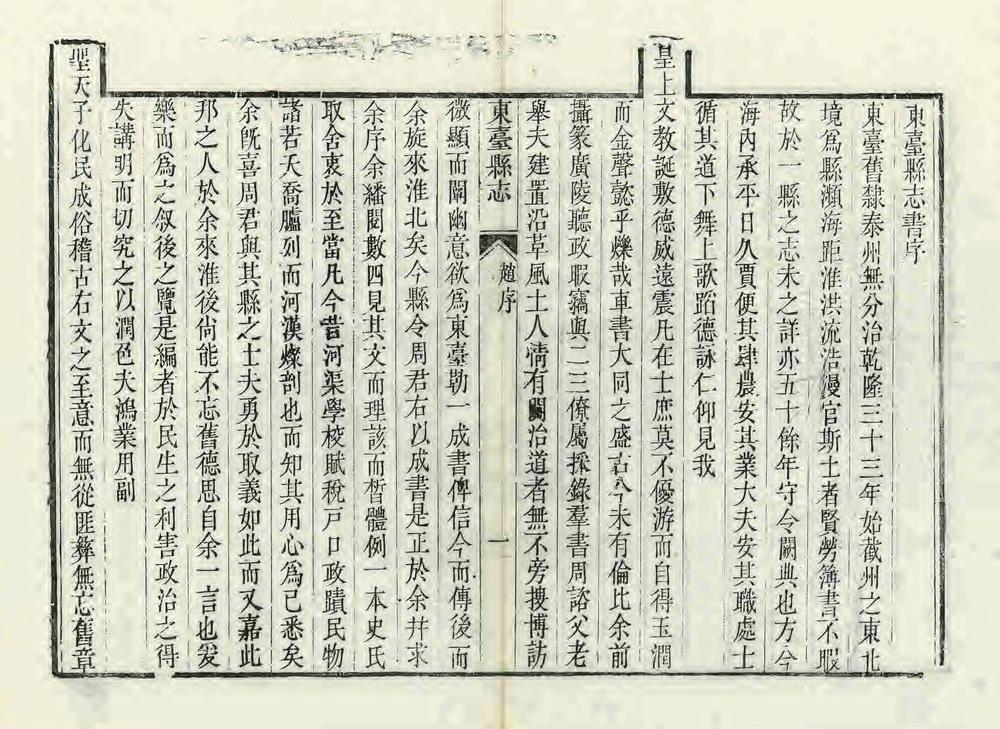 東臺縣志書序
東臺舊隸泰州無分治乾隆三十三年始截州之東北
境爲縣瀕海距淮洪流浩漫官斯土者賢勞簿書不暇
故於一縣之志未之詳亦五十餘年守令闕典也方今
海內承平日久賈便其肆農安其業大夫安其職處士
循其道下舞上歌蹈德詠仁仰見我
皇上文教誕敷德威遠震凡在士庶莫不優游而自得玉潤
而金聲懿乎爍哉車書大同之盛古今未有倫比余前
攝篆廣陵聽政暇竊與二三僚屬採錄羣書周諮父老
舉夫建置沿革風土人情有關治道者無不旁搜博訪
東臺縣志 趙序 一
微顯而闡幽意欲爲東臺勒一成書俾信今而傳後而
余旋來淮北矣今縣令周君右以成書是正於余幷求
余序余繙閱數四見其文而理該而晳體例一本史氏
取舍衷於至當凡今昔河渠學校賦稅戶口政蹟民物
諸若夭喬臚列而河漢燦剖也而知其用心爲已悉矣
余旣喜周君與其縣之士夫勇於取義如此而又嘉此
邦之人於余來淮後尙能不忘舊德思自余一言也爰
樂而爲之叙後之覽是編者於民生之利害政治之得
失講明而切究之以潤色夫鴻業用副
聖天子化民成俗稽古右文之至意而無從匪彝無忘舊章